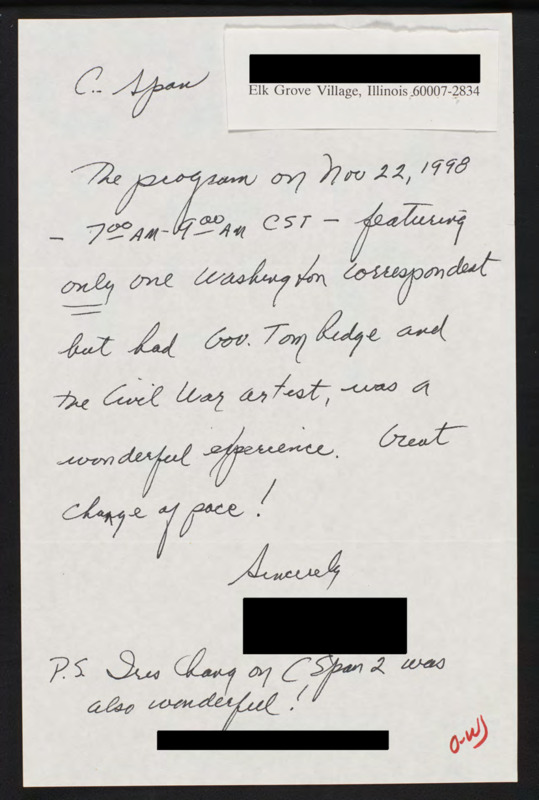 Elk Grove Village, Illinois 60007-2834
C-Span
The program on Nov 22, 1998
- 7:00 AM-9:00 AM CST - featuring
only one Washington correspondent
but had Gov. Tom Ridge and
the Civil War artist, was a
wonderful experience. Great
change of pace!
Sincerely
P.S. Iris Chang on C Span 2 was
also wonderful!
O-WJ